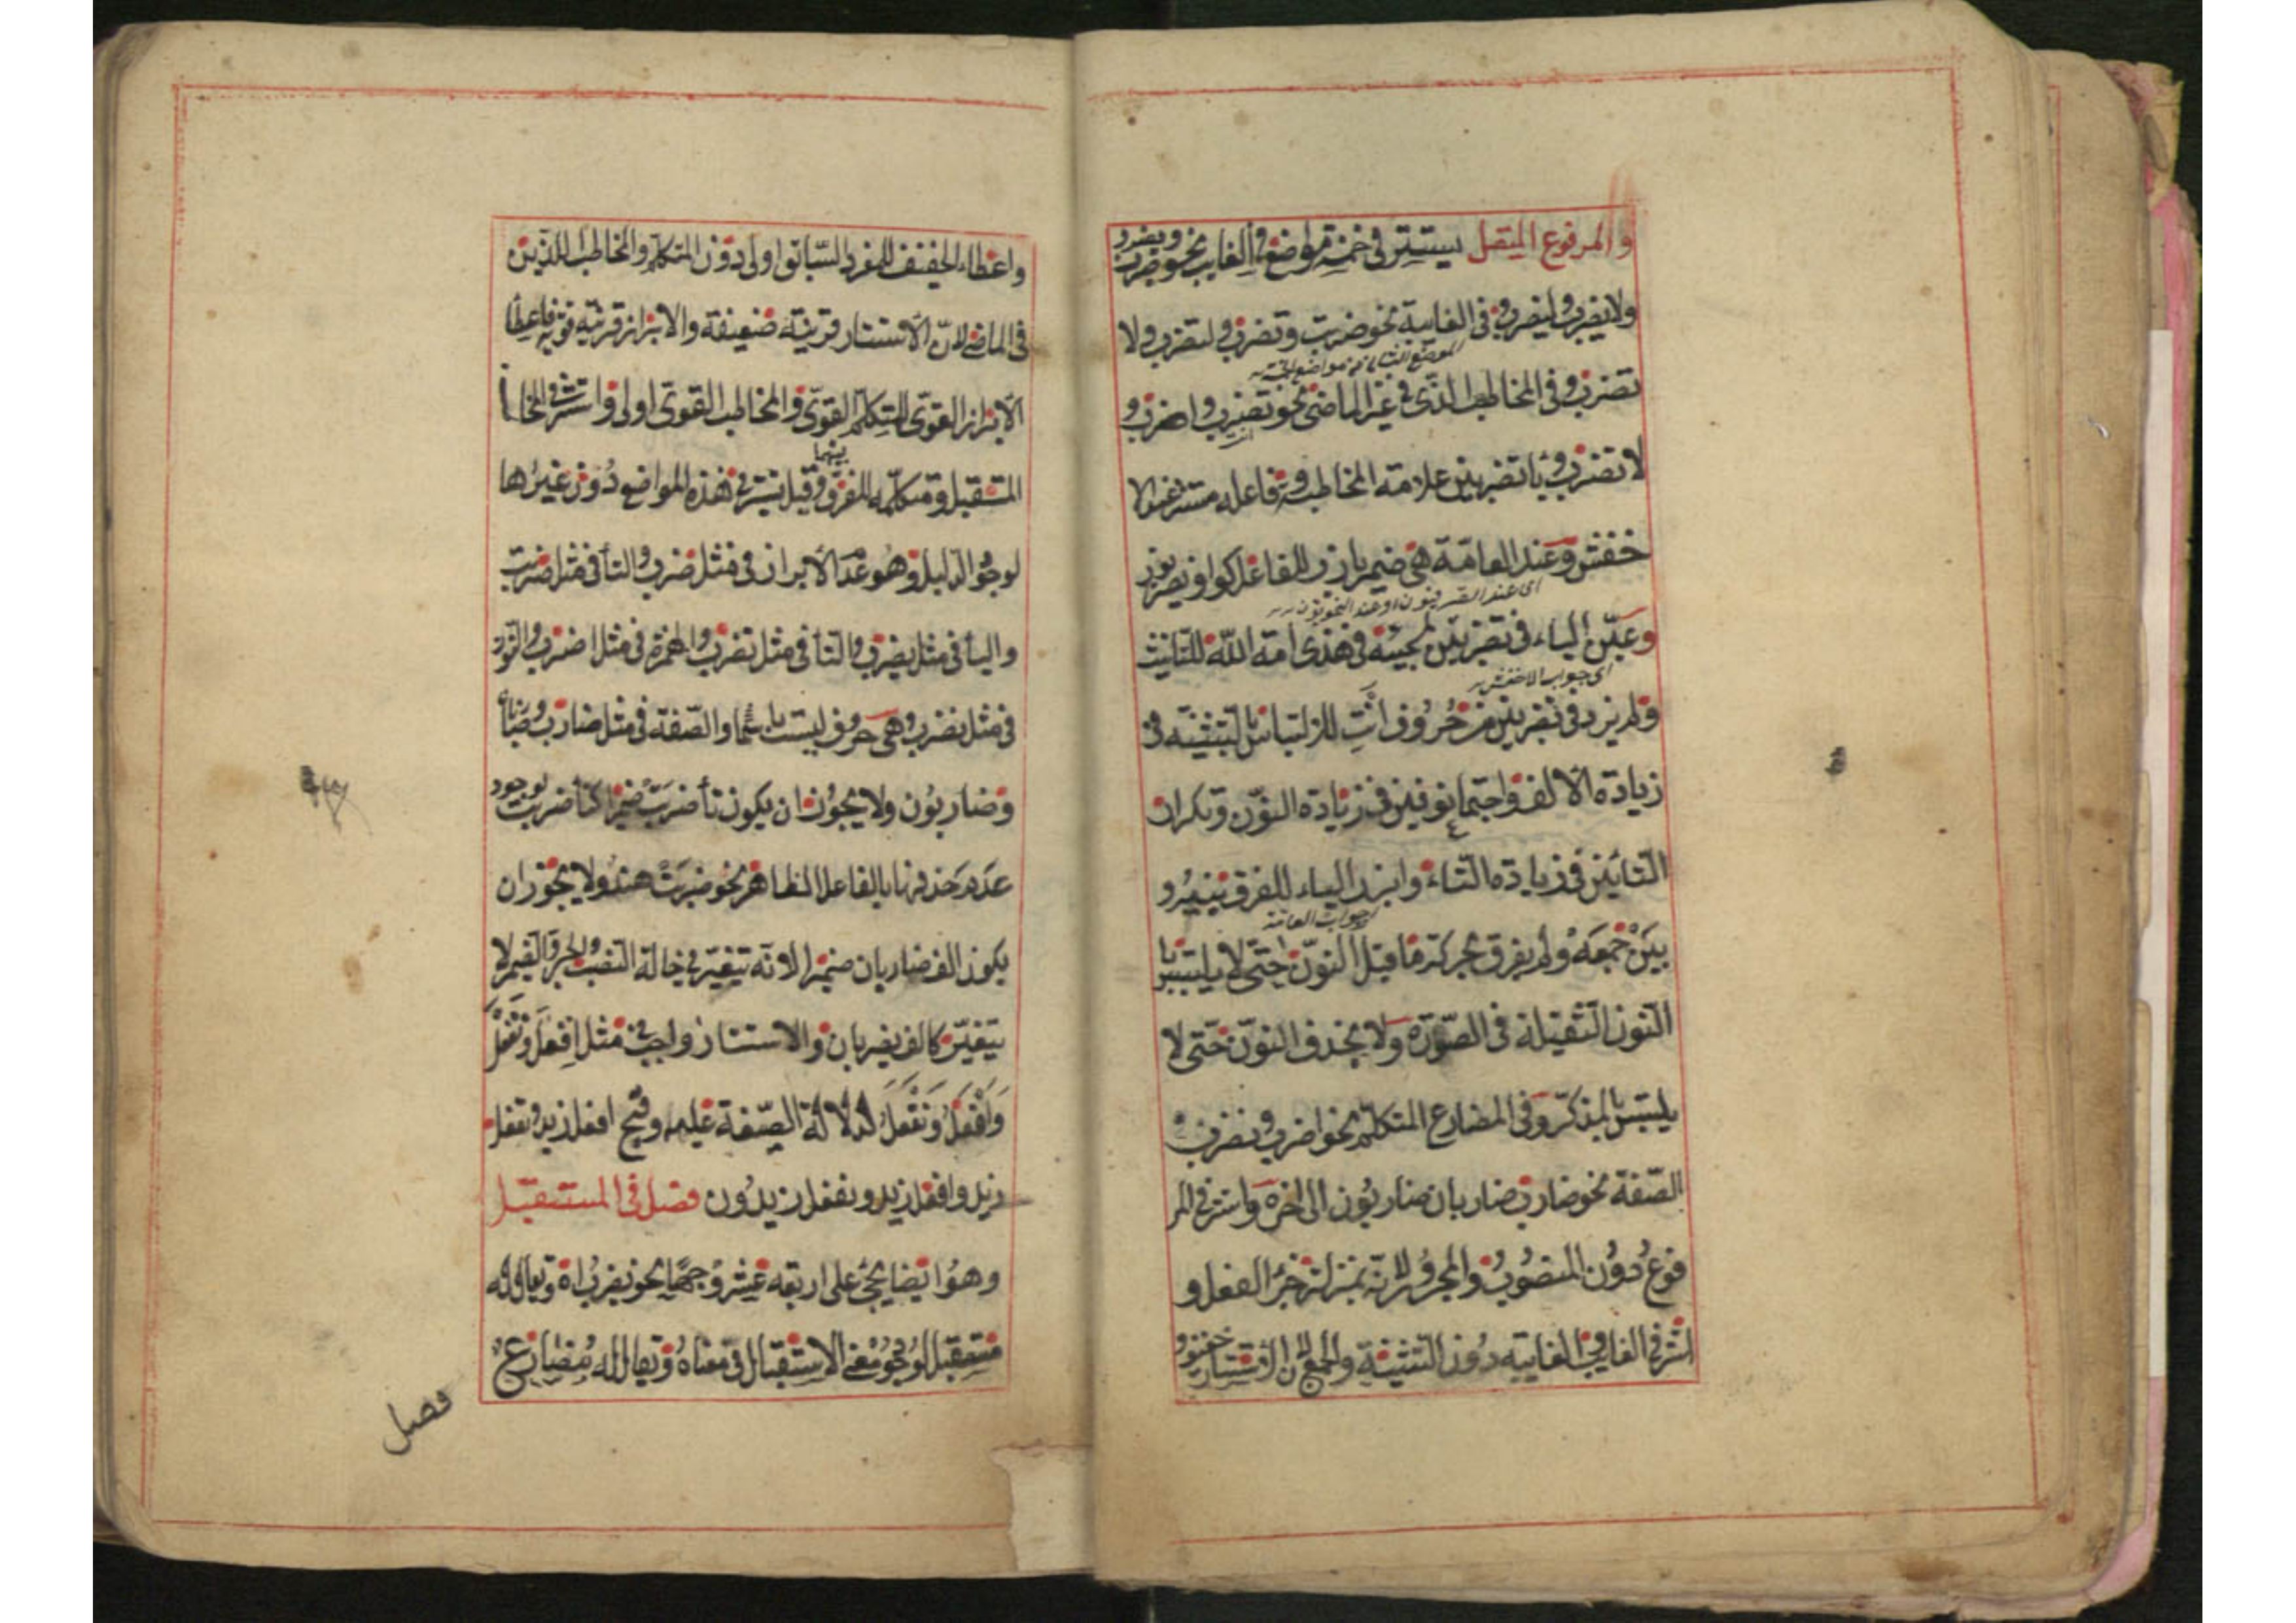 والمرفوع المتصل يستتر فى خمسة مواضع فى الغايب نحو ضرب ويضرب
ولا يضرب وليضرب وفى الغايبة نحو ضربت وتضرب ولتضرب ولا
الموضع الثانى من مواضع الخمسة
تضرب وفى المخاطب الذى فى غير الماضى نحو تضرب واضرب و
لا تضرب وياء تضربين علامة المخاطبة وفاعله مستتر عند الا
خفش وعند العامة هى ضمير بارز للفاعل كواو يضربون
اى عند الصرفيون او عند النحويون
وعين الياء فى تضربين لمجيئه فى هذى امة الله للتانيث
اى جواب الاخفش
ولم يزد فى تضربين من حروف انت للالتباس بالتثنية فى
زيادة الالف واجتماع نونين فى زيادة النون وتكرار
التائين فى زيادة التاء وابرز الياء للفرق بينه و
جواب العامة
بين جمعه ولم يفرق بحركة ما قبل النون حتى لا يلتبس با
النون الثقيلة فى الصورة ولا يحذف النون حتى لا
يلتبس بالمذكر وفى المضارع المتكلم نحو اضرب ونضرب و
الصفة نحو ضارب ضاربان ضاربون الى اخره واستتر فى المر
فوع دون المنصوب والمجرور لانه بمنزلة جزء الفعل و
استتر فى الغايب والغايبة دون التثنية والجمع لان الاستتار خفيف
واعطاء الخفيف للمفرد السابق اولى دون المتكلم والمخاطب اللذين
فى الماضى لان الاستتار قرينة ضعيفة والابراز قرينة قوية فاعطاء
الابراز القوى للمتكلم القوى والمخاطب القوى اولى واستتر فى المخا
بينهما
المستقبل ومتكلمه للفرق وقيل يستتر فى هذه المواضع دون غيرها
لوجود الدليل وهو عدم الابراز فى مثل ضرب والتاء فى مثل ضربت
والياء فى مثل يضرب والتاء فى مثل تضرب والهمزة فى مثل اضرب والنون
فى مثل نضرب وهى حروف ليست باسماء والصفة فى مثل ضارب وضاربان
وضاربون ولا يجوز ان يكون تاء ضربت ضميرا كتاء ضربت لوجود
عدم حذفها بالفاعل الظاهر نحو ضربت هند ولا يجوز ان
يكون الف ضاربان ضميرا لانه تتغير فى حالة النصب والجر والضمير لا
يتغير كالف يضربان والاستتار واجب فى مثل افعل وتفعل
وافعل ونفعل لدلالة الصيغة عليه وقبح افعل زيد وتفعل
زيد وافعل زيد ونفعل زيدون فصل فى المستقبل
وهو ايضا يجئ على اربعة عشر وجها نحو يضرب اه ويقال له
مستقبل لوجود معنى الاستقبال فى معناه ويقال له مضارع
فصل